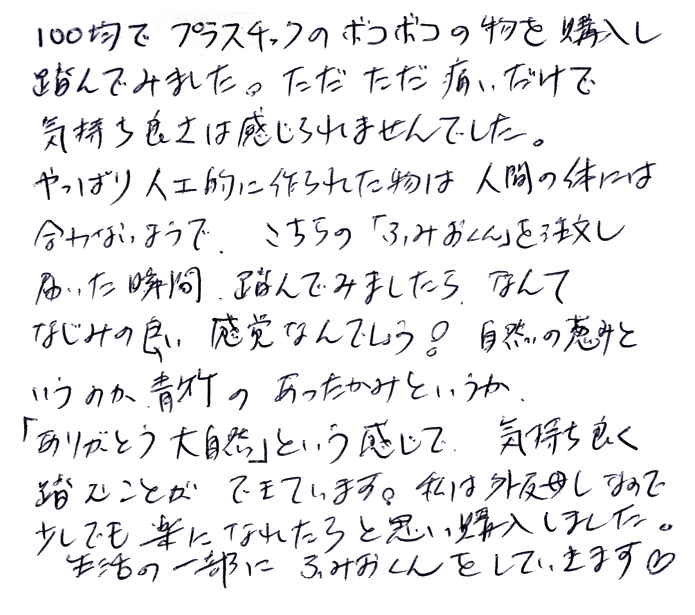 100均で プラスチックのボコボコの物を購入し
踏んでみました。ただ ただ 痛いだけで
気持ち良さは感じられませんでした。
やっぱり人工的に作られた物は 人間の体には
合わないようで、こちらの「ふみおくん」を注文し
届いた瞬間、踏んでみましたら、なんて
なじみの良い 感覚なんでしょう! 自然の恵みと
いうのか、青竹の あったかみというか、
「ありがとう 大自然」という感じで、気持ち良く
踏むことができています。私は外反母しなので
少しでも楽になれたらと思い購入しました。
生活の一部に ふみおくんをしていきます♡